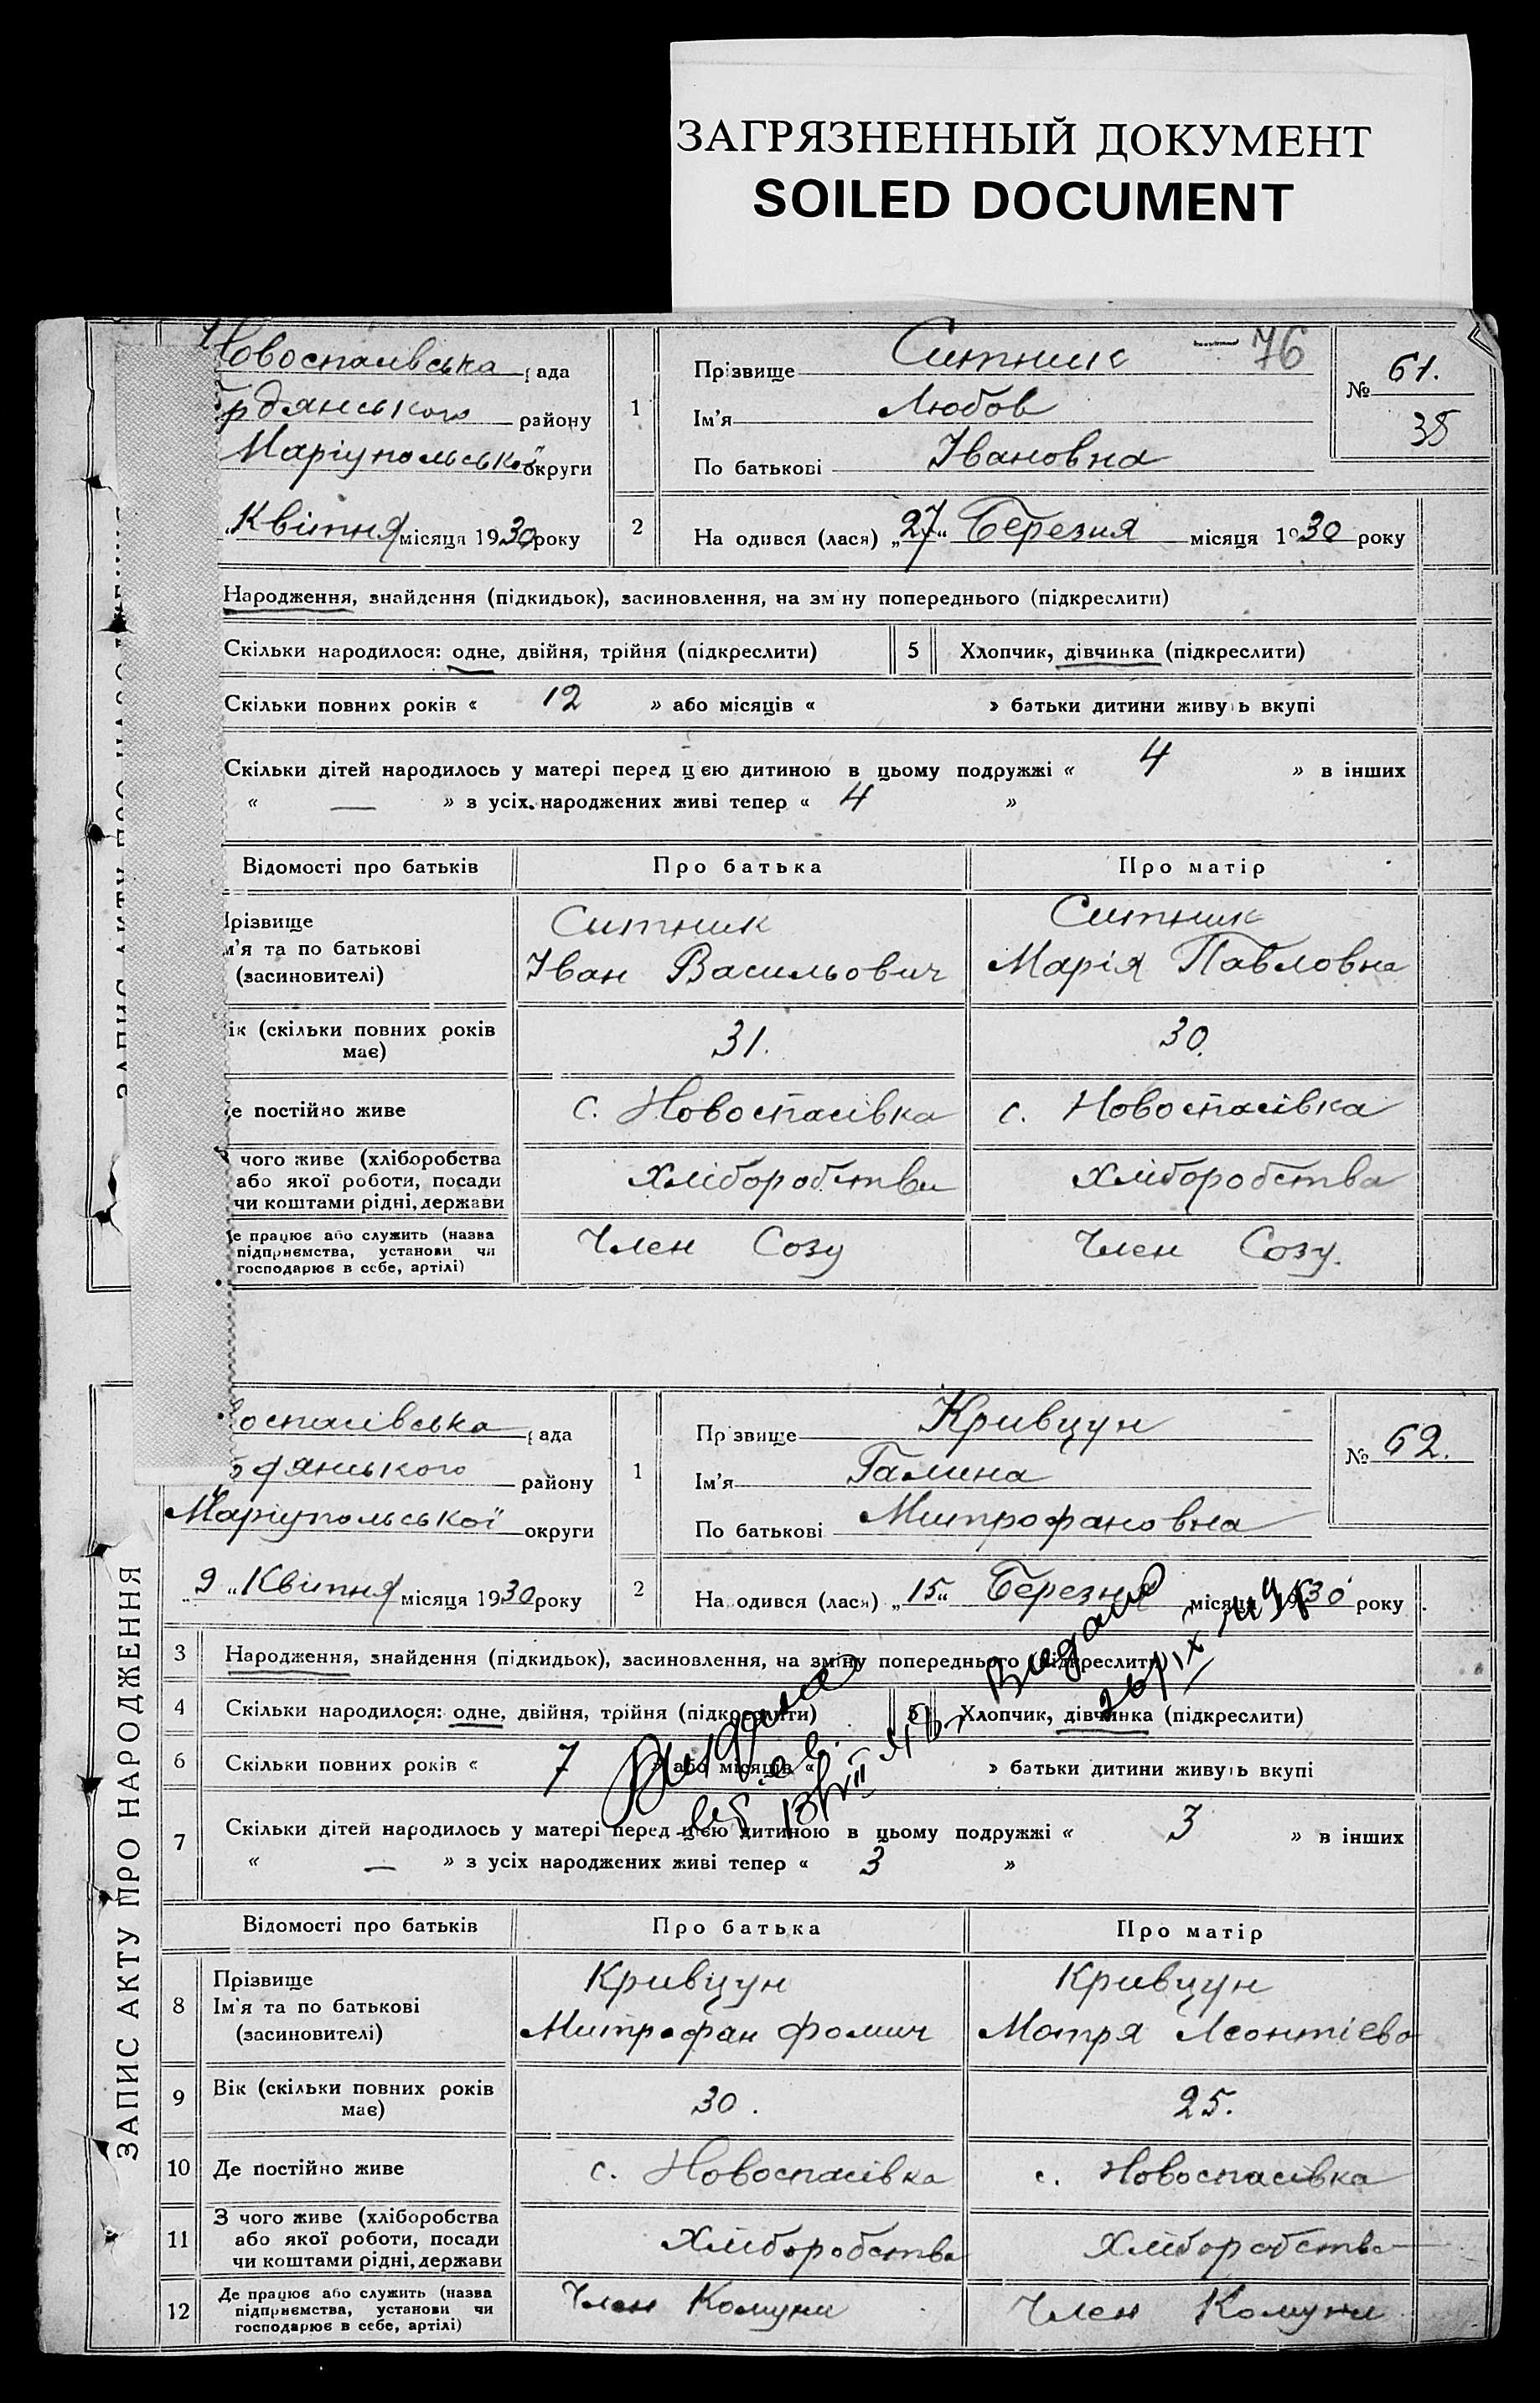 ЗАГРЯЗНЕННЫЙ ДОКУМЕНТ
SOILED DOCUMENT
Новоспаівська рада
рдянського району
Маріупольської округи
Квітня місяця 1930 року
1
Прізвище Ситник 76
Ім'я Любов
По батькові Івановна
№ 61.
35
2
На одився (лася) „27" Березня місяця 1930 року
Народження, знайдення (підкидьок), засиновлення, на зміну попереднього (підкреслити)
Скільки народилося: одне, двійня, трійня (підкреслити) 5 Хлопчик, дівчинка (підкреслити)
Скільки повних років « 12 » або місяців « » батьки дитини живуть вкупі
Скільки дітей народилось у матері перед цією дитиною в цьому подружжі « 4 » в інших
« — » з усіх народжених живі тепер « 4 »
Відомості про батьків Про батька Про матір
Ірізвище Ситник Ситник
м'я та по батькові Іван Васильович Марія Павловна
(засиновителі)
ік (скільки повних років має) 31. 30.
е постійно живе с. Новоспасівка с. Новоспасівка
чого живе (хліборобства
або якої роботи, посади Хліборобства Хліборобства
чи коштами рідні, держави
е працює або служить (назва
підприємства, установи чи Член Созу Член Созу.
господарює в себе, артілі)
ЗАПИС АКТУ ПРО НАРОДЖЕННЯ
оспасівська рада
дянського району
Маріупольської округи
„9" Квітня місяця 1930 року
1
Прізвище Кривцун
Ім'я Галина
По батькові Митрофановна
№ 62.
2
На одився (лася) „15" Березня місяця 1930 року
3 Народження, знайдення (підкидьок), засиновлення, на зміну попереднього (підкреслити)
4 Скільки народилося: одне, двійня, трійня (підкреслити) 5 Хлопчик, дівчинка (підкреслити)
6 Скільки повних років « 7 » або місяців « » батьки дитини живуть вкупі
7 Скільки дітей народилось у матері перед цією дитиною в цьому подружжі « 3 » в інших
« — » з усіх народжених живі тепер « 3 »
Відомості про батьків Про батька Про матір
8 Прізвище Кривцун Кривцун
Ім'я та по батькові Митрофан Фомич Мотря Леонтіевa
(засиновителі)
9 Вік (скільки повних років має) 30. 25.
10 Де постійно живе с. Новоспасівка с. Новоспасівка
11 З чого живе (хліборобства
або якої роботи, посади Хліборобства Хліборобства
чи коштами рідні, держави
12 Де працює або служить (назва
підприємства, установи чи Член Комуни Член Комуни
господарює в себе, артілі)